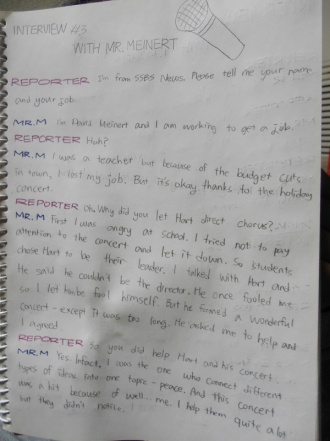 INTERVIEW #3
WITH MR. MEINERT
REPORTER I'm from SSBS News. Please tell me your name
and your job.
MR.M I'm David Meinert and I am working to get a job.
REPORTER Huh?
MR.M I was a teacher but because of the budget cuts
in town, I lost my job. But it's okay thanks to the holiday
concert.
REPORTER Oh, Why did you let Hart direct chorus?
MR.M First I was angry at school. I tried not to pay
attention to the concert and let it down. So students
chose Hart to be their leader. I talked with Hart and
He said he couldn't be the director. He once fooled me
so I let him fool himself. But he formed a wonderful
concert - except it was too long. He asked me to help and
I agreed
REPORTER So you did help Hart and his concert
MR.M Yes. Infact, I was the one who connect different
types of ideas into one topic - peace. And this concert
was a hit because of well... me. I help them quite a lot
but they didn't notice.